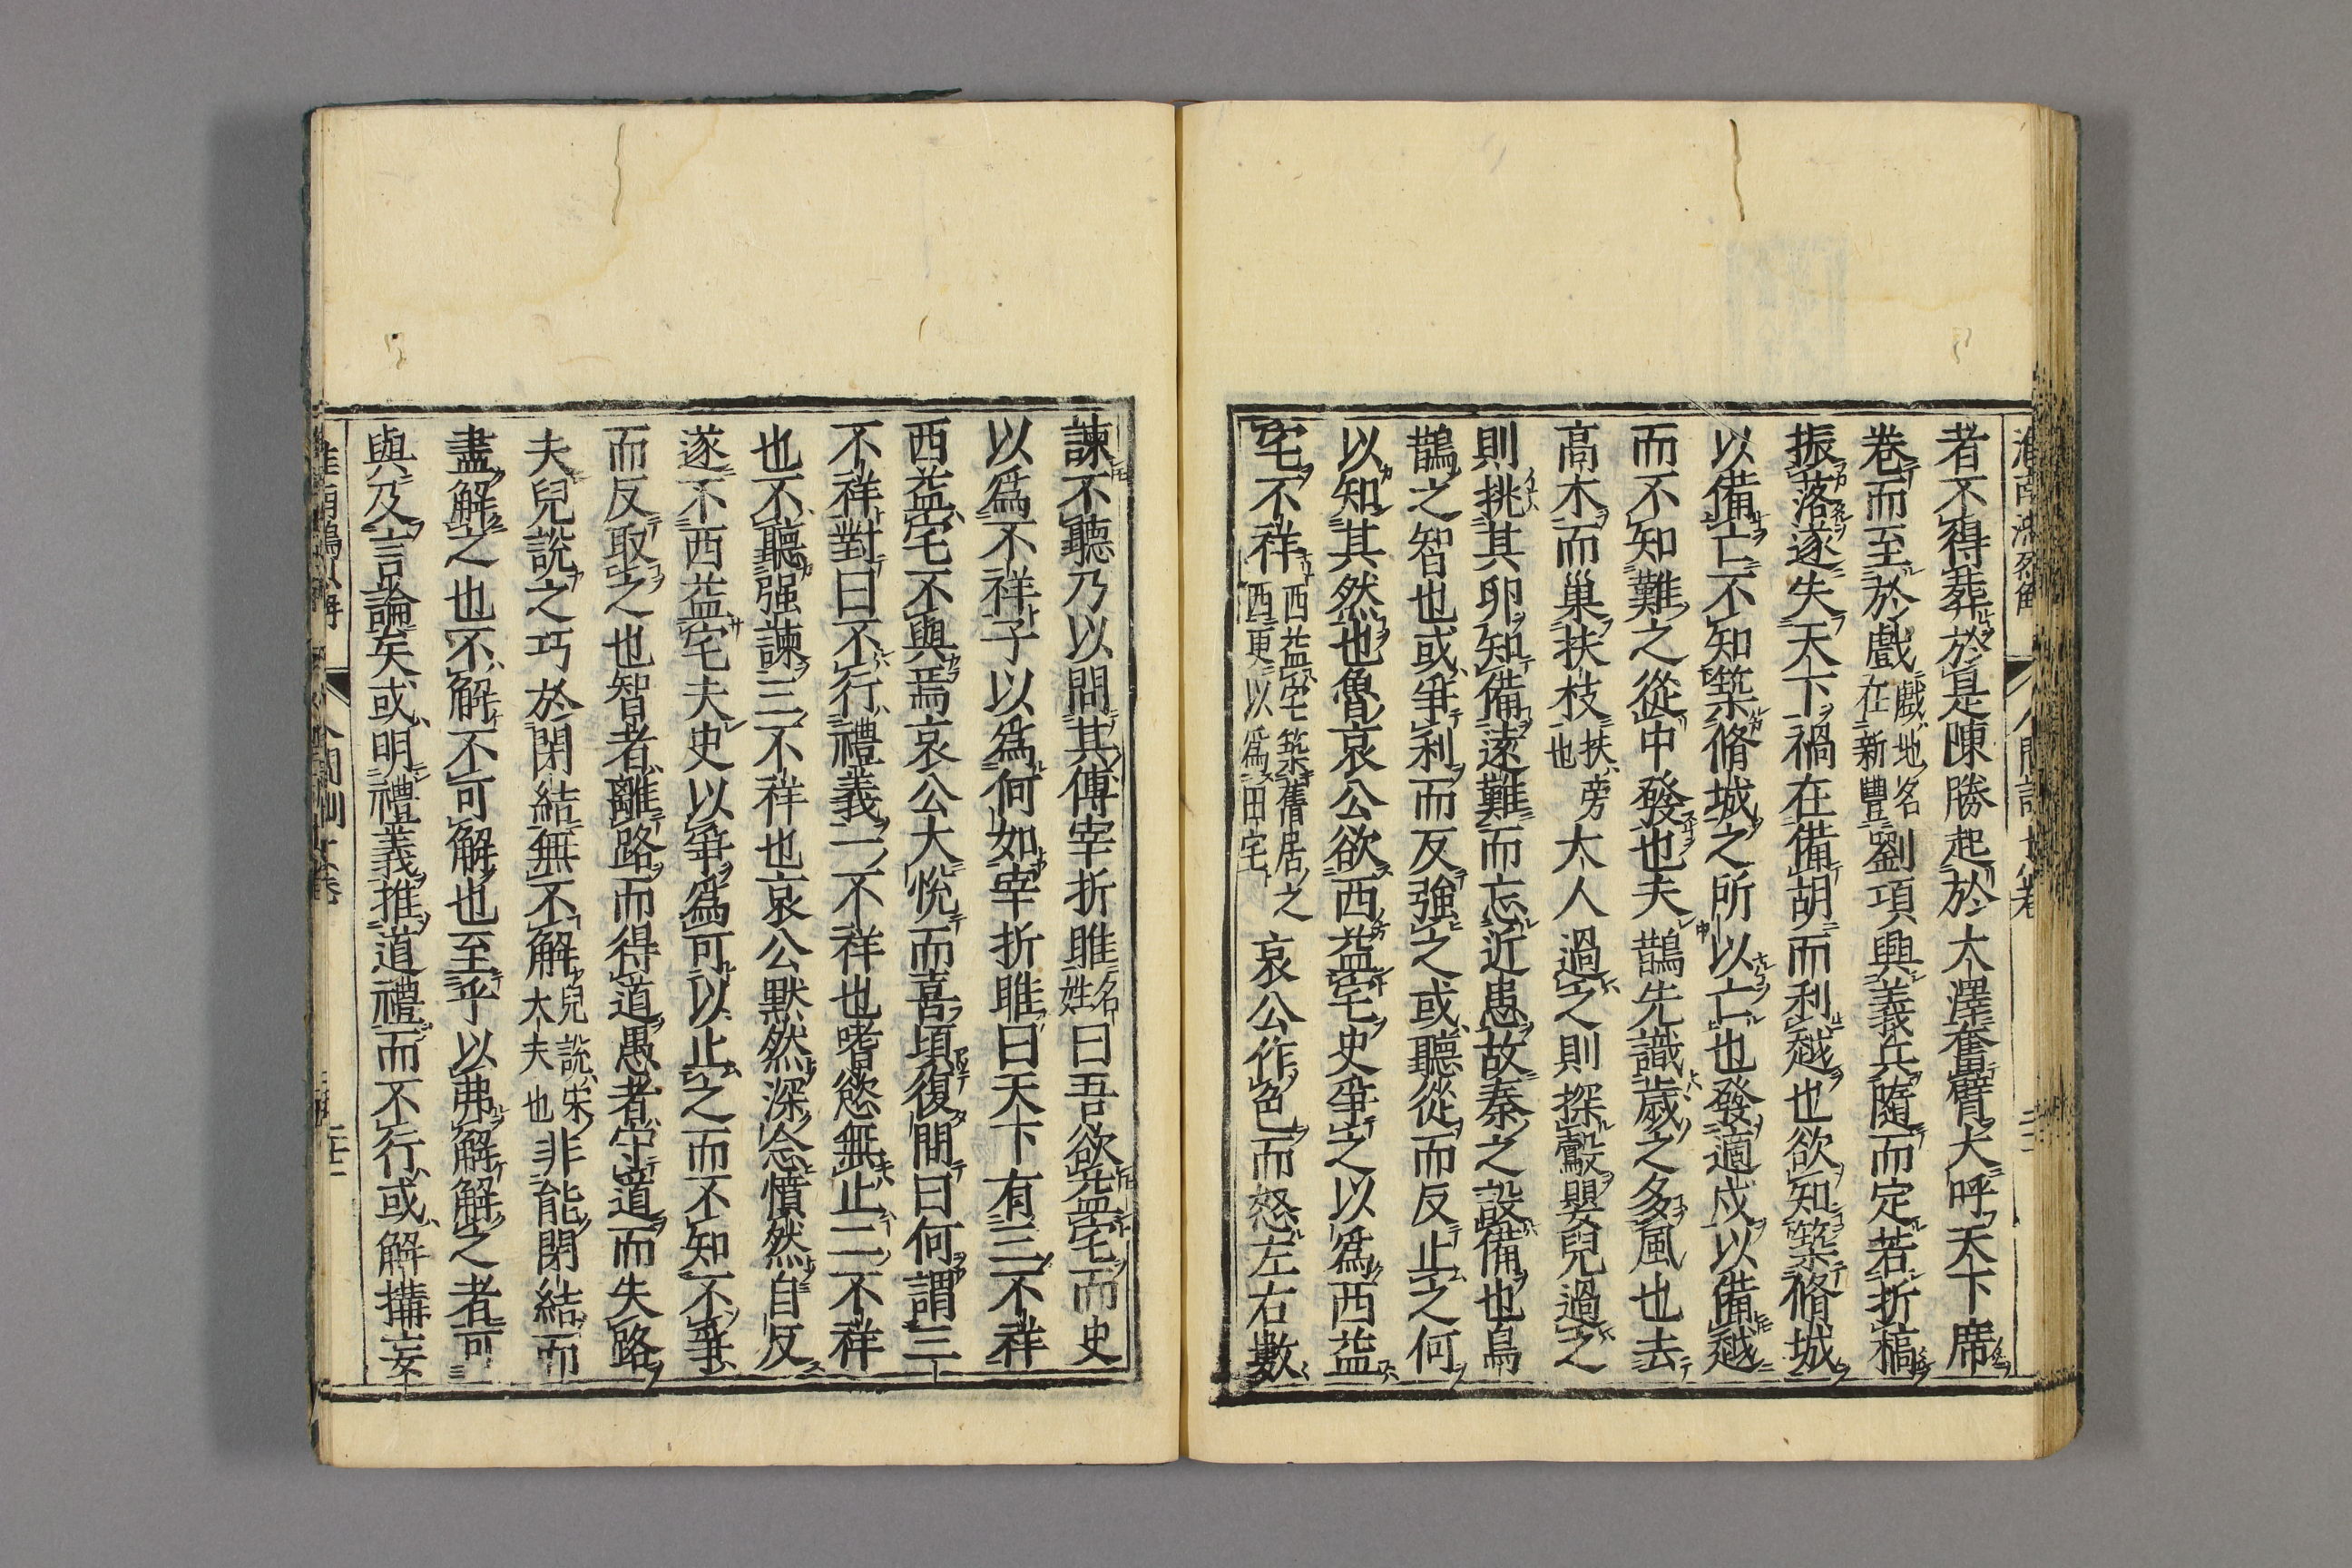 者不得葬於是陳勝起於大澤奮臂大呼天下席
卷而至於戲戲地名在新豐劉項興義兵隨而定若折槁
振落遂失天下禍在備胡而利越也欲知築脩城
以備亡不知築脩城之所以亡也發適戍以備越
而不知難之從中發也夫鵲先識歳之多風也去
高木而巢扶枝扶旁也大人過之則探鷇嬰兒過之
則挑其卵知備遠難而忘近患故秦之設備也烏
鵲之智也或爭利而反強之或聽從而反止之何
以知其然也魯哀公欲西益宅史爭之以為西益
宅不祥西益宅築舊居之西更以為田宅哀公作色而怒左右數
諫不聽乃以問其傅宰折睢名姓曰吾欲益宅而史
以為不祥子以為何如宰折睢曰天下有三不祥
西益宅不與焉哀公大悅而喜頃復問曰何謂三
不祥對曰不行禮義一不祥也嗜慾無止二不祥
也不聽强諫三不祥也哀公默然深念憤然自反
遂不西益宅夫史以爭為可以止之而不知不爭
而反取之也智者離路而得道愚者守道而失路
夫兒說之巧於閉結無不解兒說宋大夫也非能閉結而
盡解之也不解不可解也至乎以弗解解之者可
與及言論矣或明禮義推道禮而不行或解搆妄